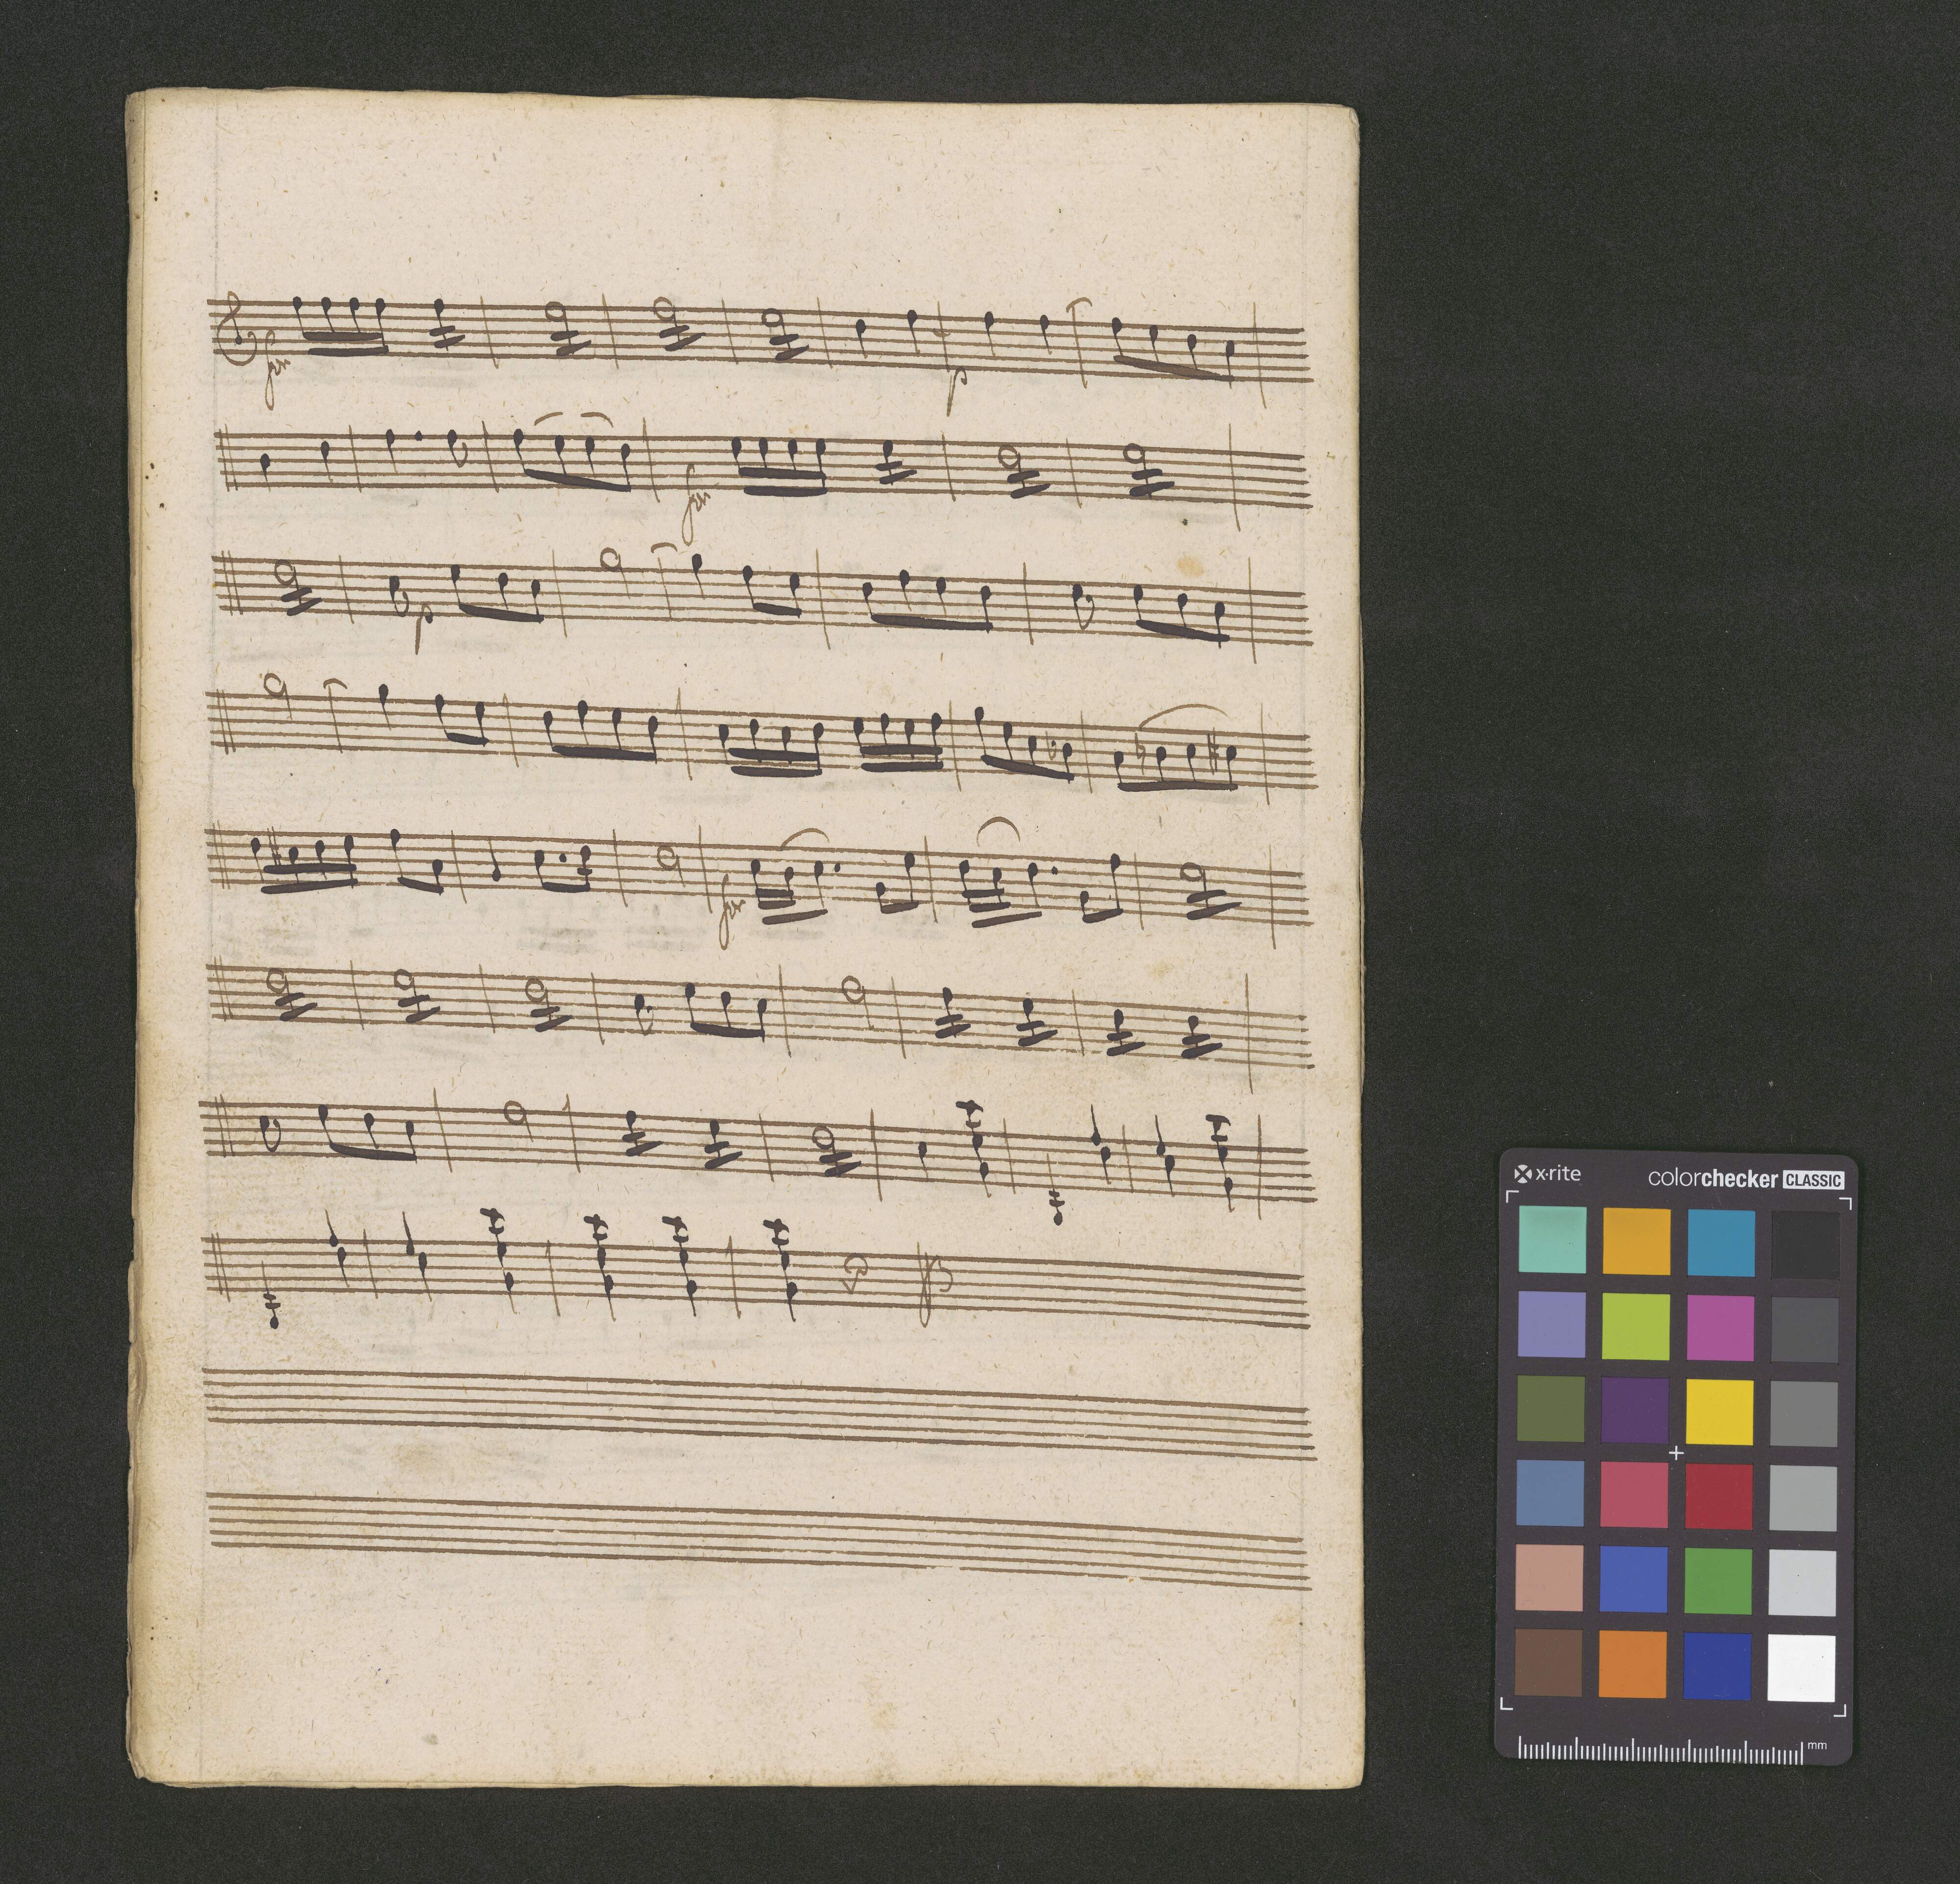 for
p
for
p
for
x-rite
colorchecker CLASSIC
mm